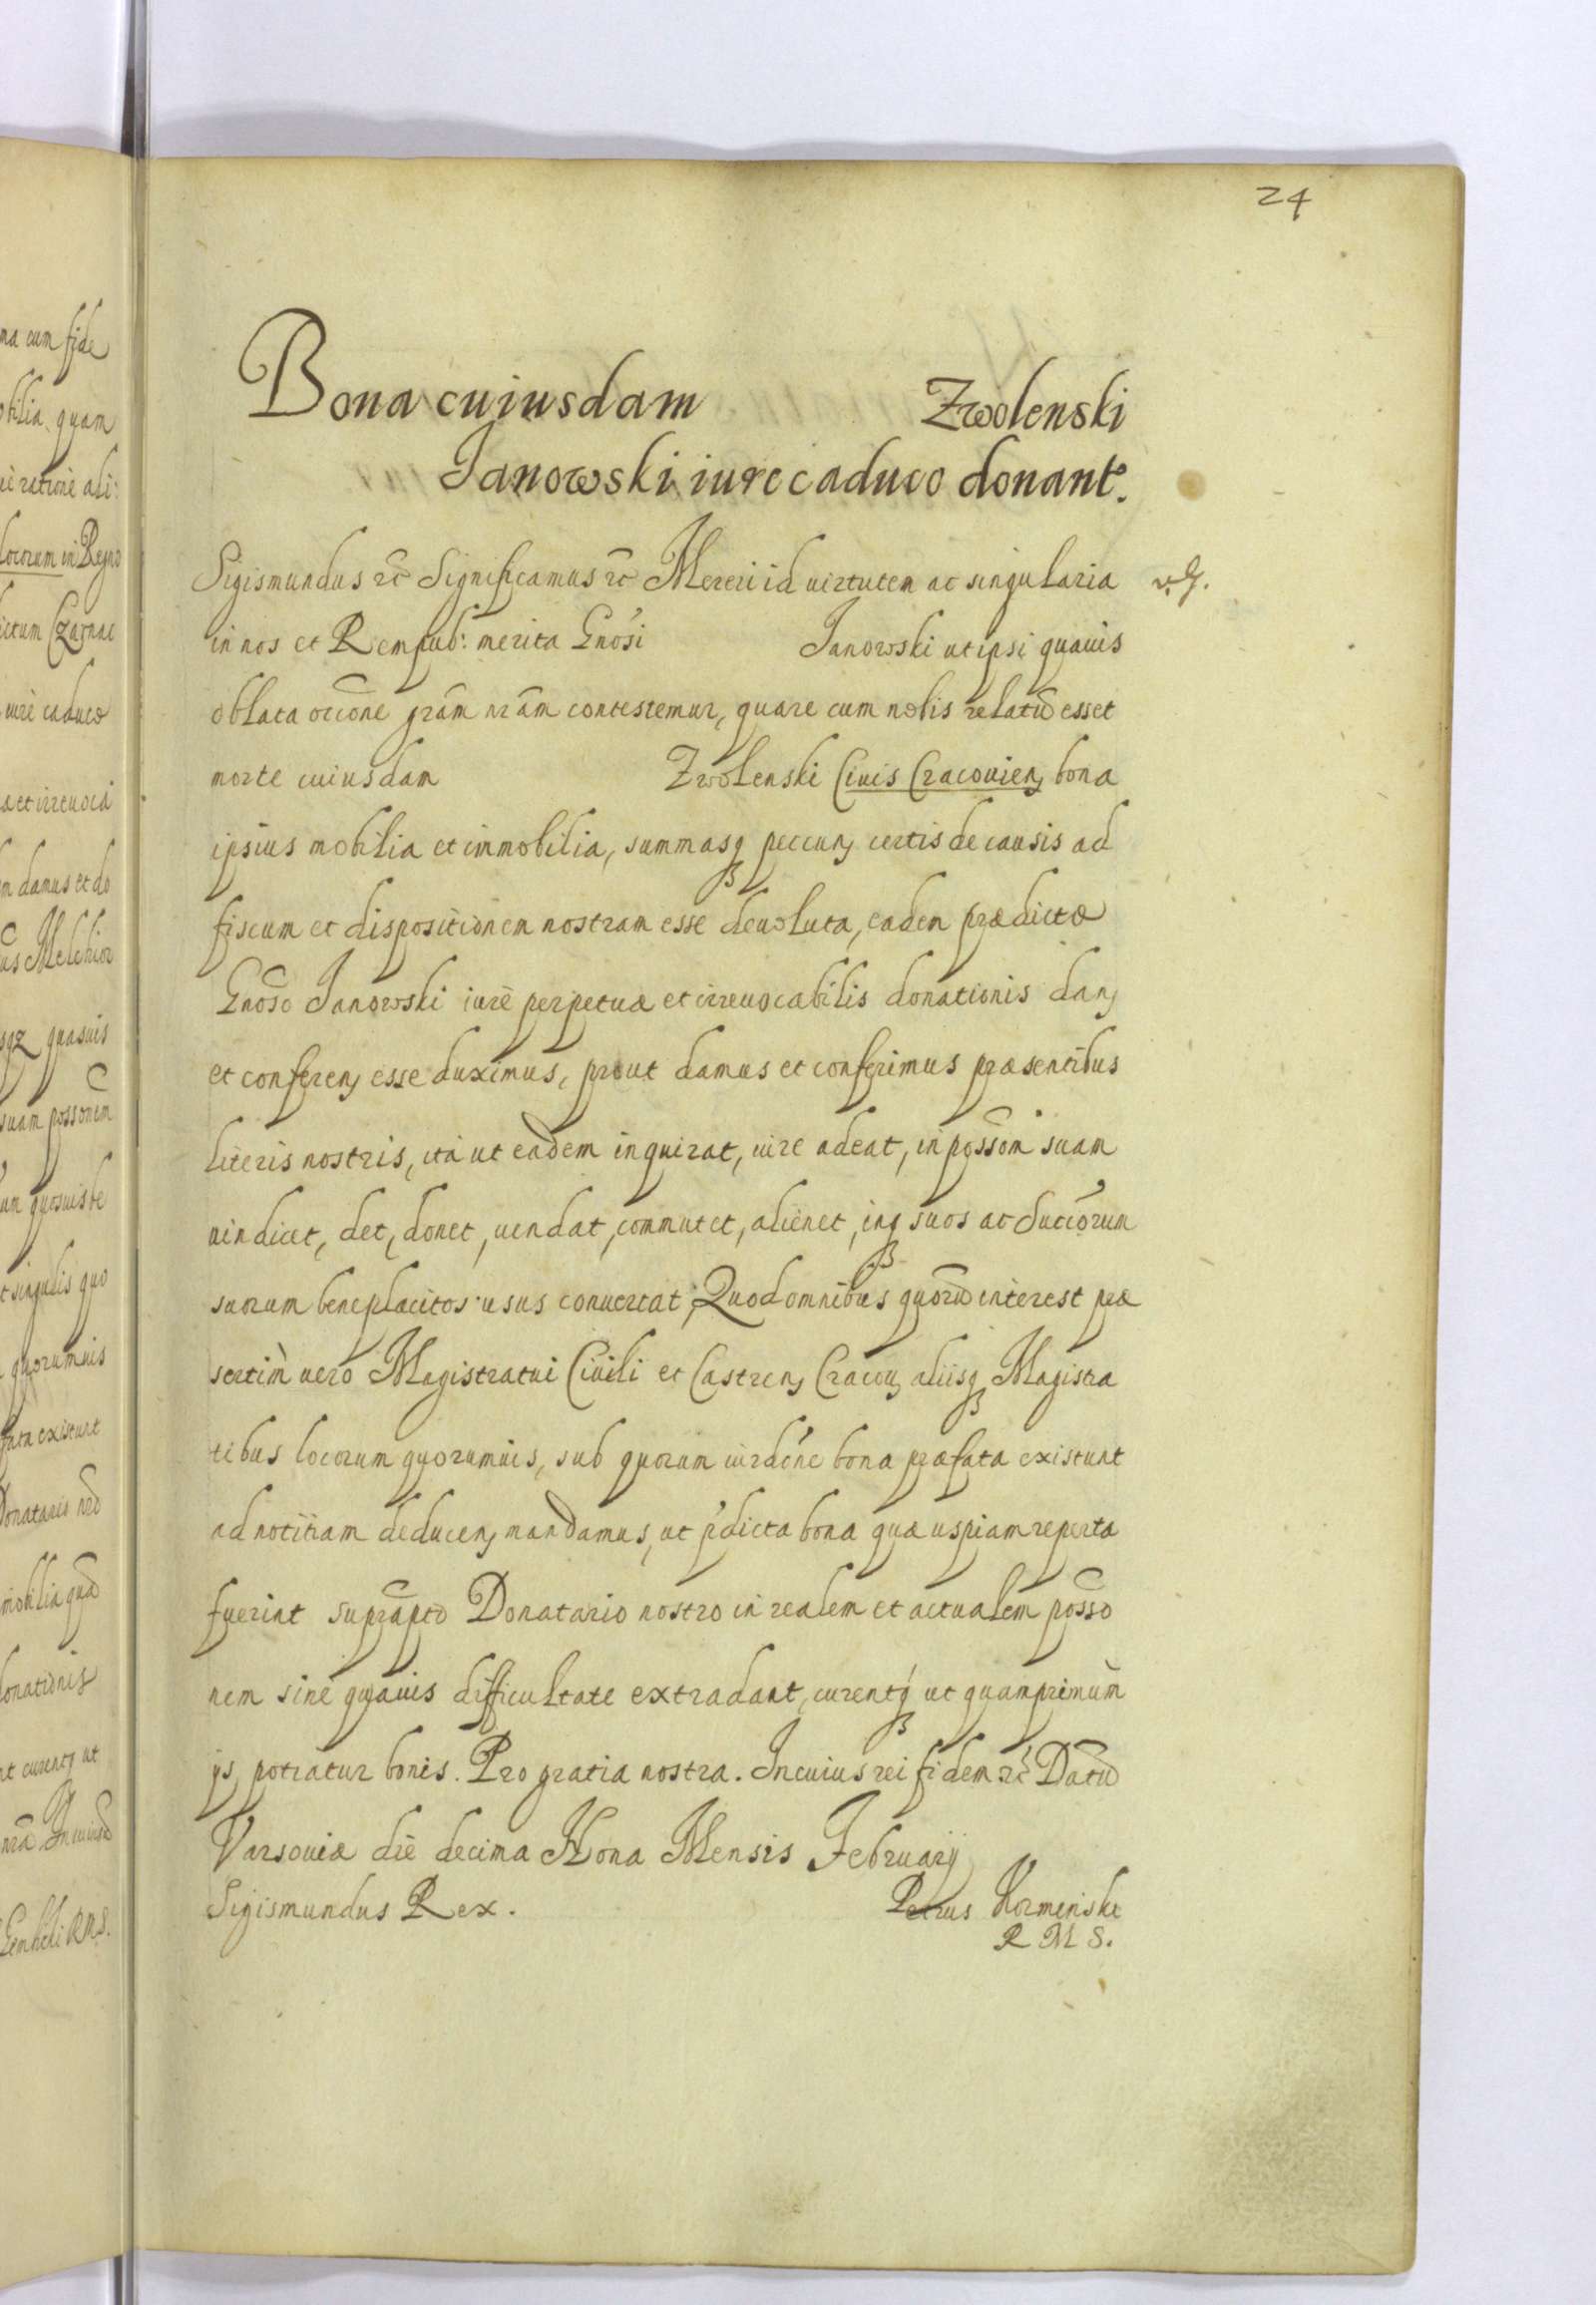 24
Bona cuiusdam Zwolenski
Janowski iure caduco donantr.
Sigismundus etc̃ Significamus etc̃ Mereri id virtutem ac singularia
in nos et Rempub: merita Gnosi Janowski ut ipsi quavis
oblata occõne grãm nrãm contestemur, quare cum nobis relatũ esset
morte cuiusdam Zwolenski Civis Cracovien, bona
ipsius mobilia et inmobilia, summasq peccun, certis de causis ad
fiscum et dispositionem nostram esse devoluta, eadem prædicto
Gnoso Janowski iure perpetuæ et irrevocabilis donationis dan,
et conferen, esse duximus, prout damus et conferimus præsentibus
literis nostris, ità ut eadem inquirat, iure adeat, in possõm suam
vindicet, det, donet, vendat, commutet, alienet, inq suos ac Succõrum
suorum beneplacitos usus convertat, Quod omnibus quorũ interest præ
sertim̀ vero Magistratui Civili et Castren, Cracov, aliisq Magistra
tibus locorum quorumvis, sub quorum iurdõne bona præfata existunt
ad notitiam deducen, mandamus, ut p̃dicta bona quæ uspiam reperta
fuerint suprãpto Donatario nostro in realem et actualem põsso
nem sine quavis difficultate extradant, curentq ut quamprimùm
ijs potiatur bonis. Pro gratia nostra. In cuius rei fidem etc̃ Datũ
Varsoviæ diè decima Nona Mensis Februarij
Sigismundus Rex. Petrus Kormenski
R M S.
na cum fide
obilia quam
locorum in Regno
ictum Czarnac
iurè caduco
a et irrevoca
m damus et do
us Melchior
sqz quasvis
suam possonem
um quosvis be
t singulis quo
quorumvis
fata existunt
Donatario nro
mobilia quã
donationis
nt curentq ut